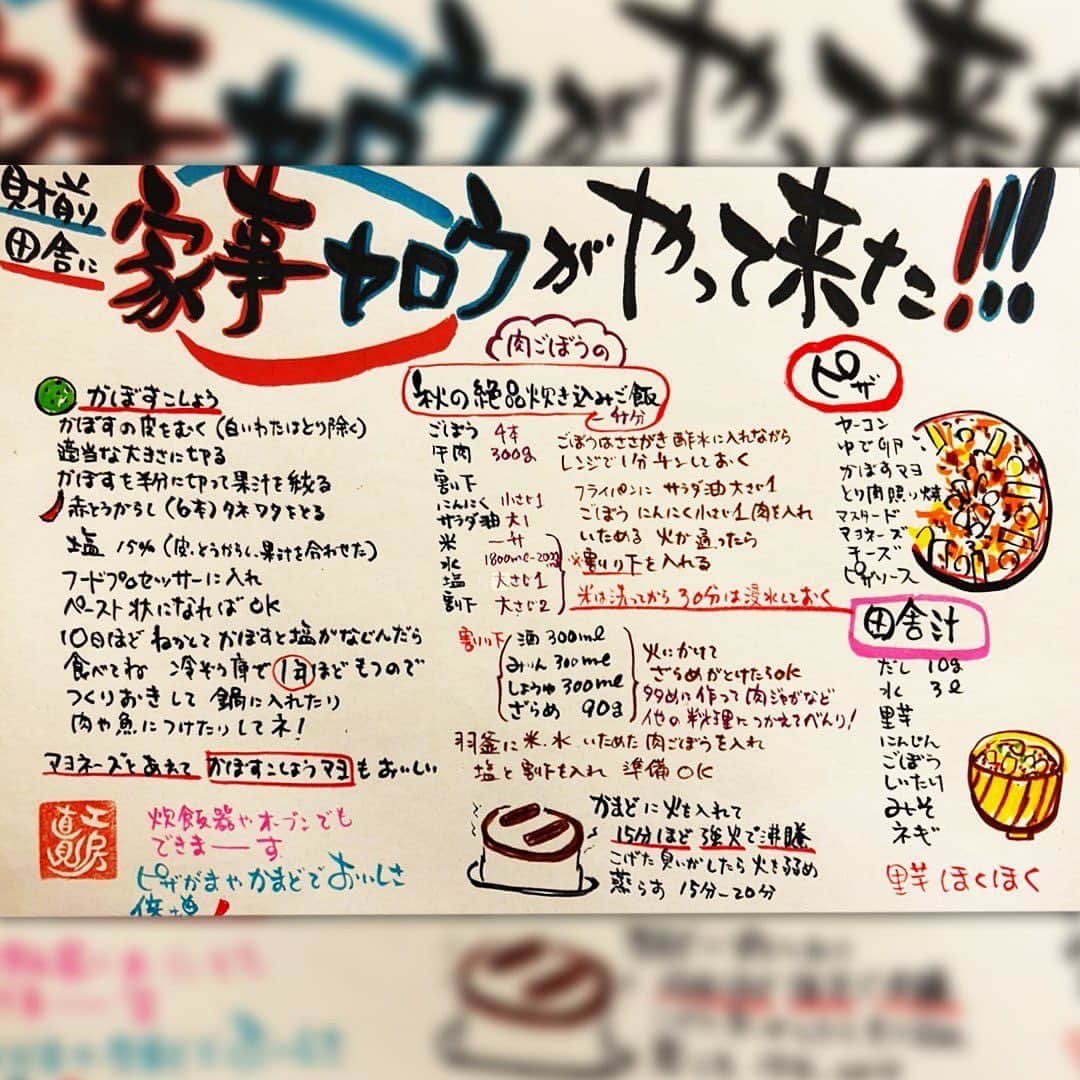 財前
田舎に
家事ヤロウがやって来た!!!
かぼすこしょう
かぼすの皮をむく(白いわたはとり除く)
適当な大きさに切る
かぼすを半分に切って果汁を絞る
赤とうがらし(6本)タネワタをとる
塩 15%(皮、とうがらし、果汁を合わせた)
フードプロセッサーに入れ
ペースト状になればOK
10日ほどねかしてかぼすと塩がなじんだら
食べてね 冷ぞう庫で1年ほどもつので
つくりおきして鍋に入れたり
肉や魚につけたりしてネ!
マヨネーズとあえて かぼすこしょうマヨ もおいしい
工房
直見
炊飯器やオーブンでも
できまーーす
ピザがまやかまどでおいしさ
倍増!
肉ごぼうの
秋の絶品炊き込みご飯
一升分
ごぼう 4本
牛肉 300g
割下
にんにく 小さじ1
サラダ油 大1
米 一升
水 1800ml~
塩 大さじ1
割下 大さじ2
ごぼうはささがき 酢水に入れながら
レンジで1分チンしておく
フライパンに サラダ油大さじ1
ごぼう にんにく小さじ1肉を入れ
いためる 火が通ったら
※割り下を入れる
米は洗ってから30分は浸水しておく
割り下
酒 300ml
みりん 300ml
しょうゆ 300ml
ざらめ 90g
火にかけて
ざらめがとけたらOK
多めに作って肉じゃがなど
他の料理につかえてべんり!
羽釜に米、水 いためた肉ごぼうを入れ
塩と割下を入れ 準備OK
かまどに火を入れて
15分ほど強火で沸騰
こげた臭いがしたら火を弱め
蒸らす 15分~20分
ピザ
ヤーコン
ゆで卵
かぼすマヨ
とり肉照り焼
マスタード
マヨネーズ
チーズ
ピザソース
田舎汁
だし 10g
水 3ℓ
里芋
にんじん
ごぼう
しいたけ
みそ
ネギ
里芋ほくほく